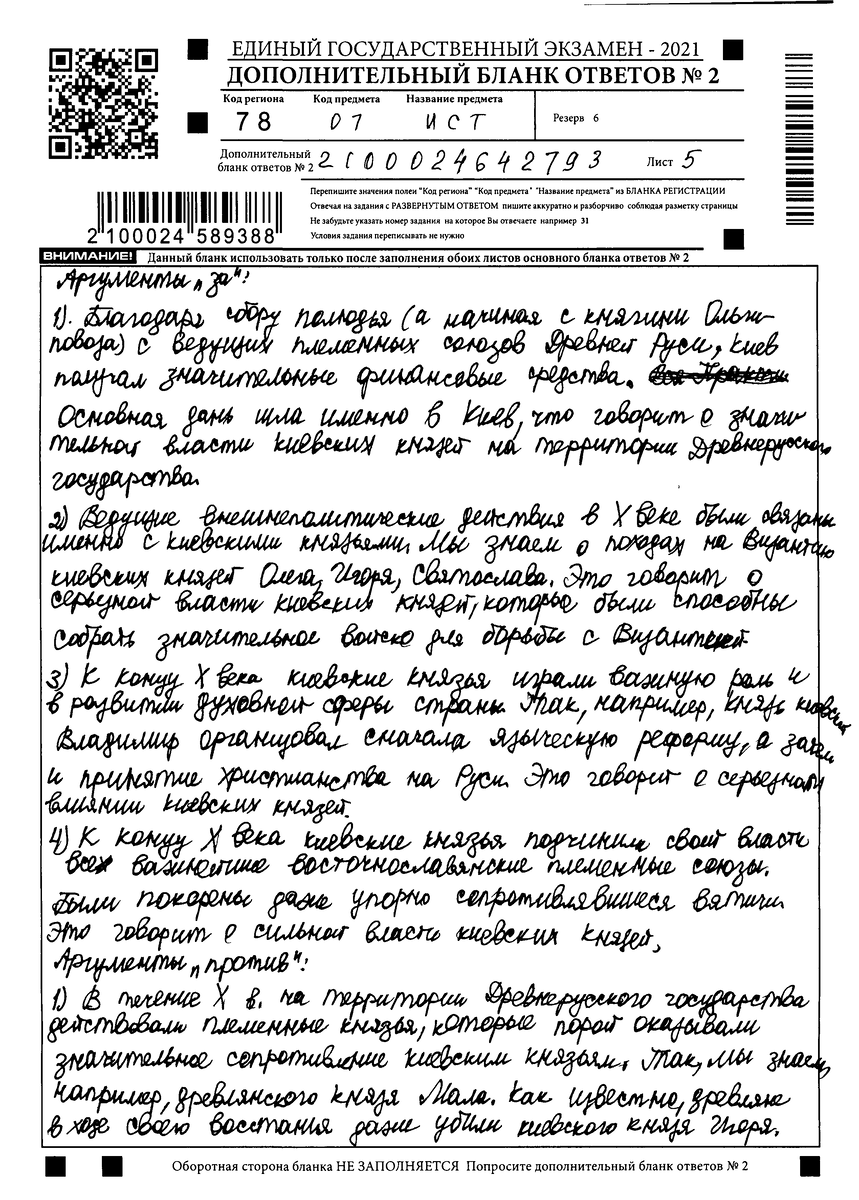 ЕДИНЫЙ ГОСУДАРСТВЕННЫЙ ЭКЗАМЕН - 2021
ДОПОЛНИТЕЛЬНЫЙ БЛАНК ОТВЕТОВ № 2
Код региона Код предмета Название предмета
Резерв 6
78 01 ИСТ
Дополнительный бланк ответов № 2 2100024642793 Лист 5
Перепишите значения полей "Код региона" "Код предмета" "Название предмета" из БЛАНКА РЕГИСТРАЦИИ
Отвечая на задания с РАЗВЕРНУТЫМ ОТВЕТОМ пишите аккуратно и разборчиво соблюдая разметку страницы
Не забудьте указать номер задания на которое Вы отвечаете например 31
Условия задания переписывать не нужно
2 100024 589388
ВНИМАНИЕ! Данный бланк использовать только после заполнения обоих листов основного бланка ответов № 2
Аргументы „за“:
1). Благодаря сбору полюдья (а начиная с княгини Ольги-
повоза) с ведущих племенных союзов Древней Руси, Киев
получал значительные финансовые средства.
Основная дань шла именно в Киев, что говорит о значи
тельной власти киевских князей на территории Древнерусского
государства.
2) Ведущие внешнеполитические действия в X веке были связаны
именно с киевскими князьями. Мы знаем о походах на Византию
киевских князей Олега, Игоря, Святослава. Это говорит о
серьезной власти киевских князей, которые были способны
собрать значительное войско для борьбы с Византией.
3) К концу X века киевские князья играли важную роль и
в развитии духовной сферы страны. Так, например, князь киевский
Владимир организовал сначала языческую реформу, а затем
и принятие христианства на Руси. Это говорит о серьезном
влиянии киевских князей.
4) К концу X века киевские князья подчинили своей власти
все важнейшие восточнославянские племенные союзы.
Были покорены даже упорно сопротивлявшиеся вятичи.
Это говорит о сильной власти киевских князей.
Аргументы „против“:
1) В течение X в. на территории Древнерусского государства
действовали племенные князья, которые порой оказывали
значительное сопротивление киевским князьям. Так, мы знаем,
например, древлянского князя Мала. Как известно, древляне
в ходе своего восстания даже убили киевского князя Игоря.
Оборотная сторона бланка НЕ ЗАПОЛНЯЕТСЯ Попросите дополнительный бланк ответов № 2